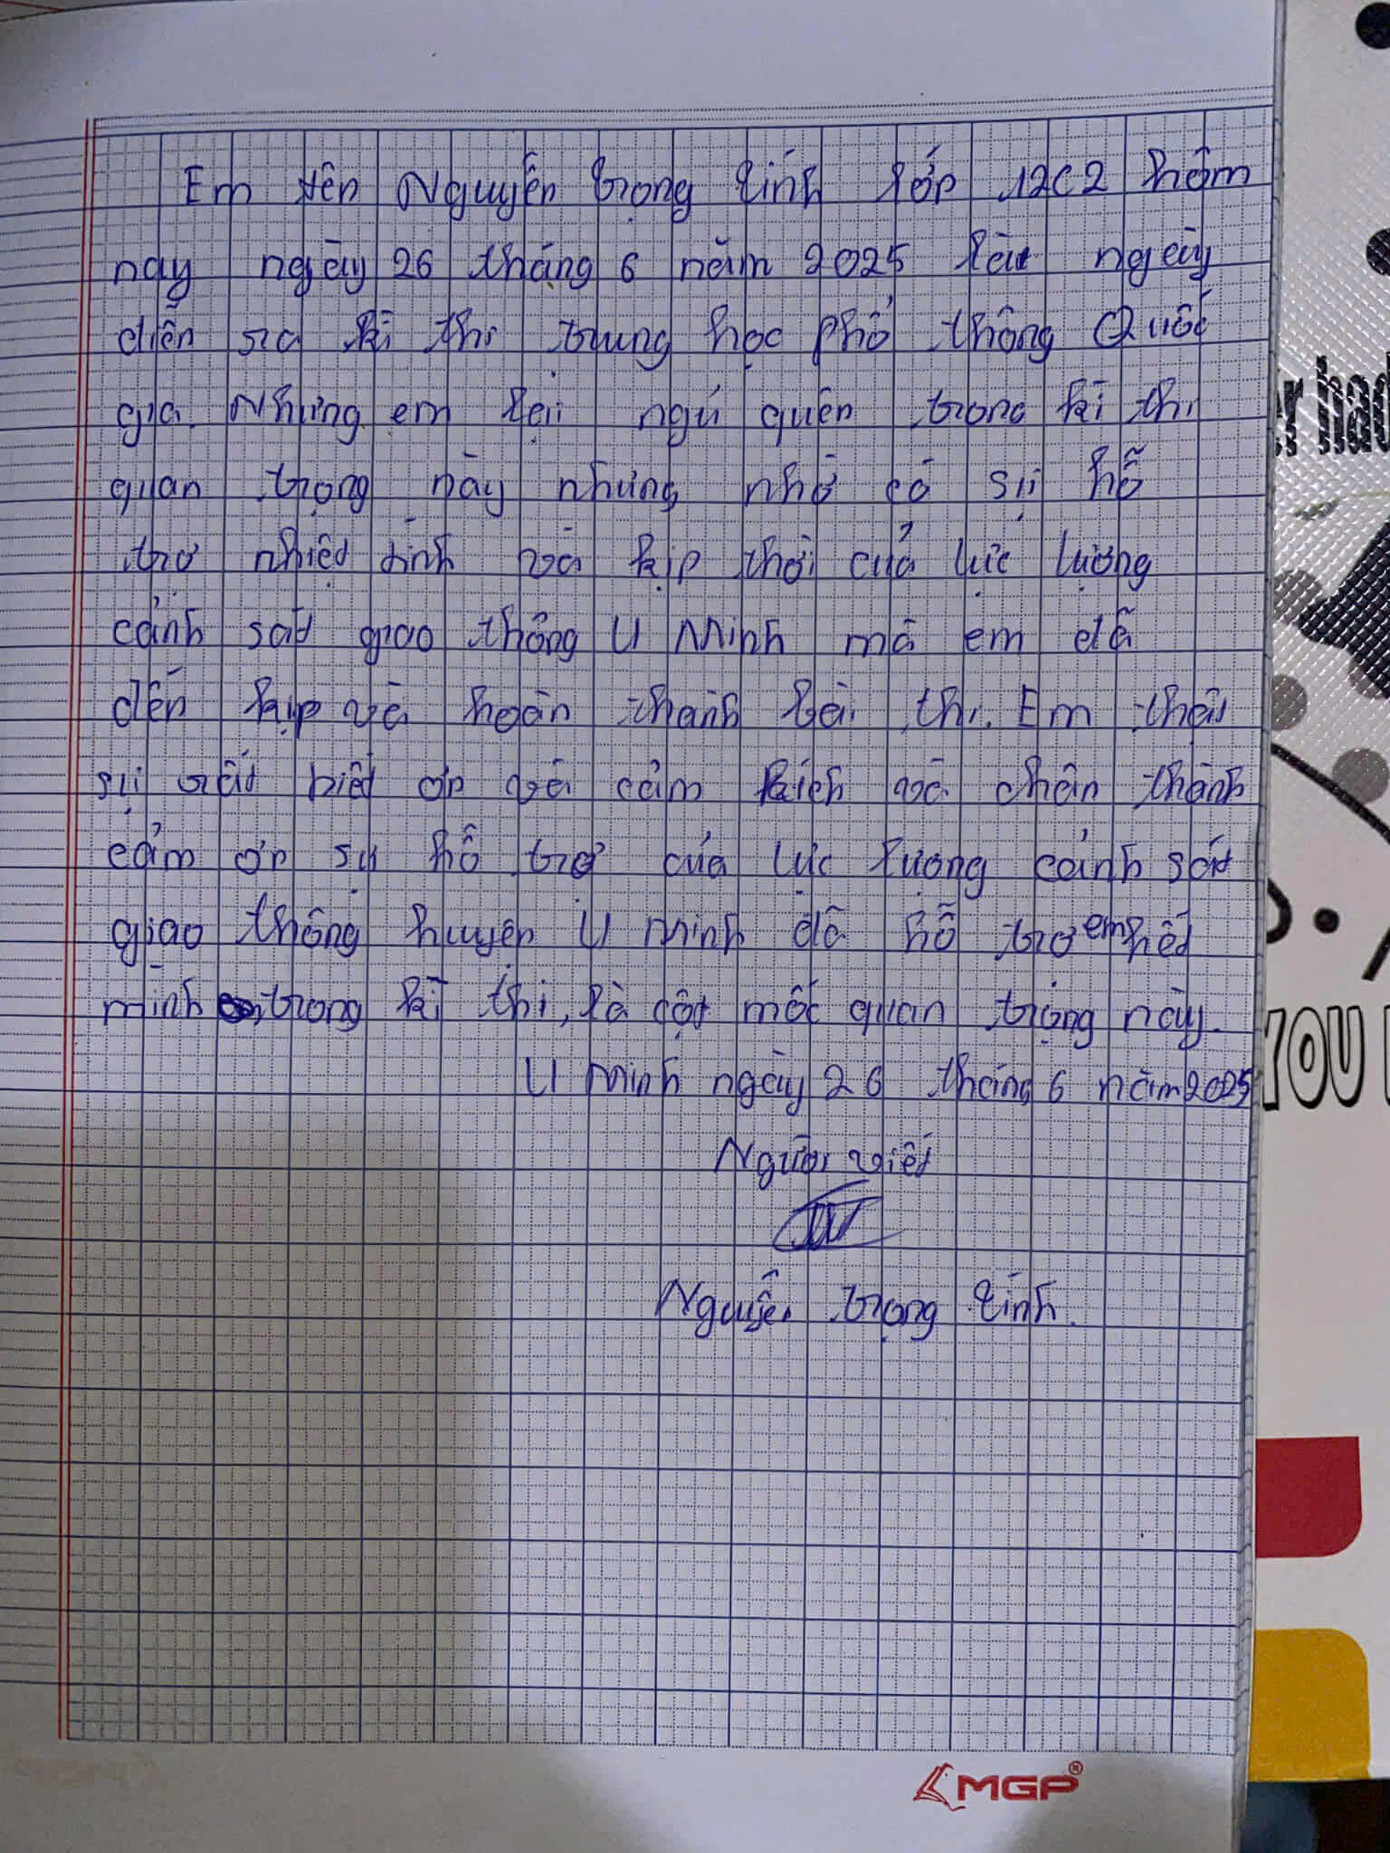 Em tên Nguyễn trọng tính lớp 12C2 hôm
nay ngày 26 tháng 6 năm 2025 là ngày
diễn ra kì thi trung học phổ thông Quốc
gia. Nhưng em lại ngủ quên trong kì thi
quan trọng này nhưng nhờ có sự hỗ
trợ nhiệt tình và kịp thời của lực lượng
cảnh sát giao thông U Minh mà em đã
đến kịp và hoàn thành bài thi. Em thật
sự rất biết ơn và cảm kích và chân thành
cảm ơn sự hỗ trợ của lực lượng cảnh sát
giao thông huyện U Minh đã hỗ trợ em hết
mình trong kì thi, là cột mốc quan trọng này.
U Minh ngày 26 tháng 6 năm 2025
Người viết
Nguyễn trọng tính.
MGP®
r had
YOU